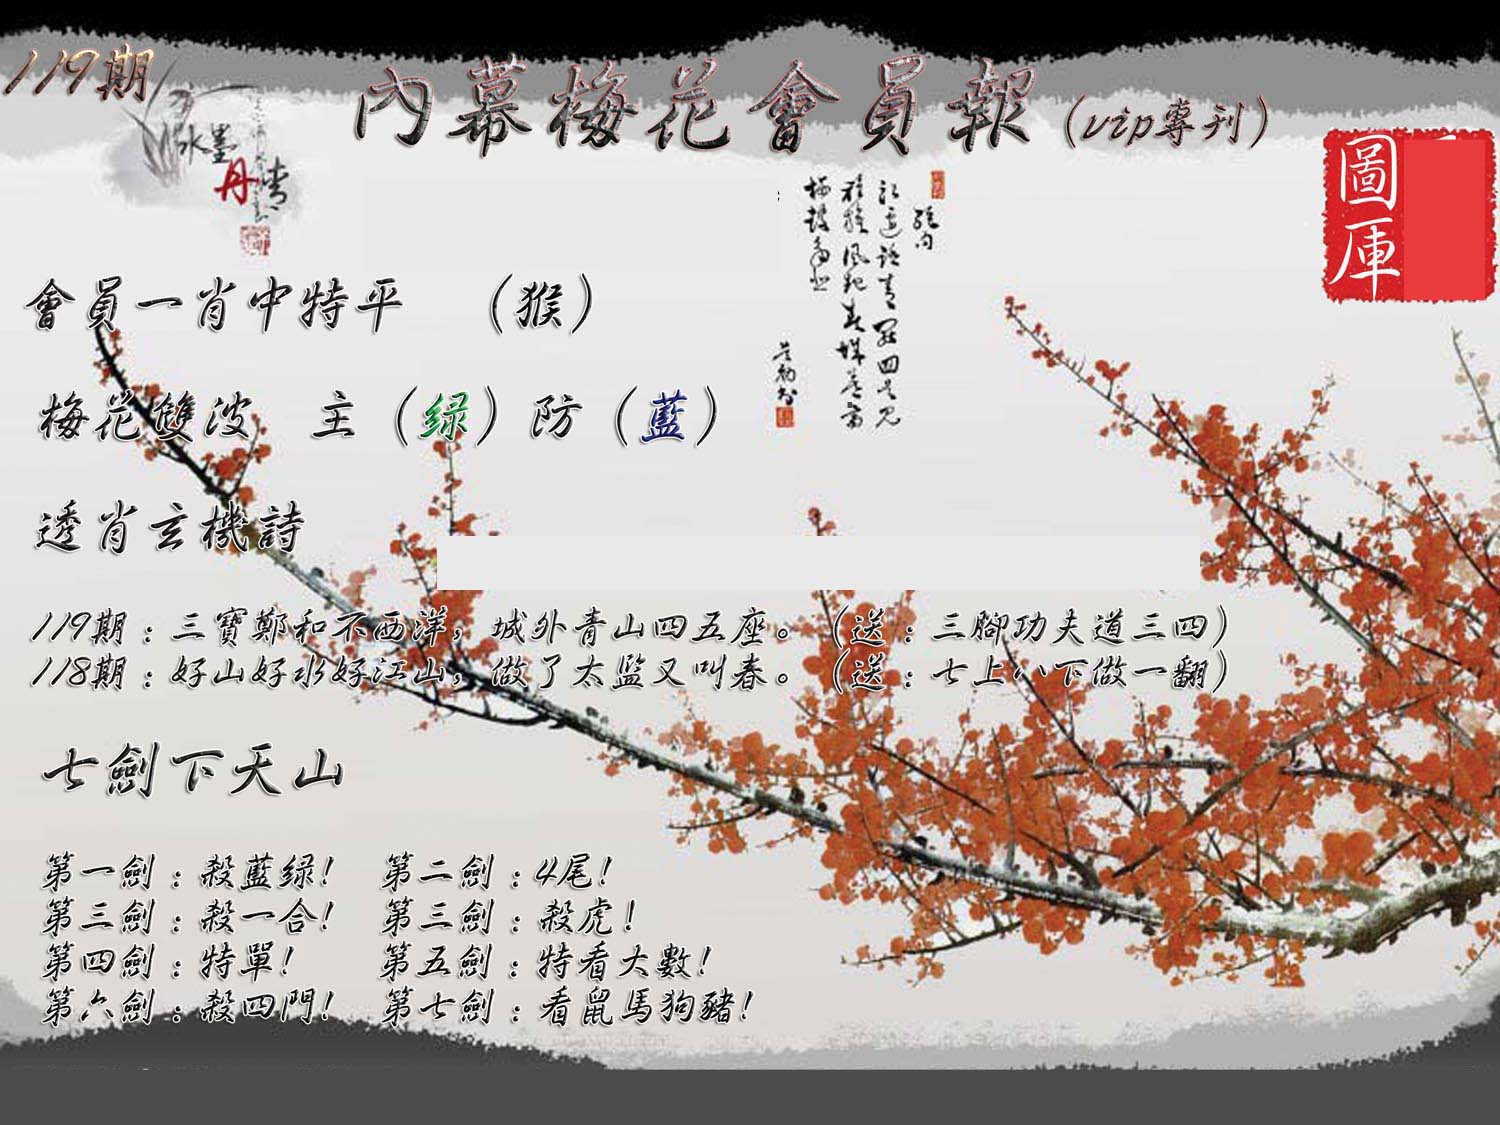 119期
內幕梅花會員報(vip專刊)
水墨
丹青
圖庫
會員一肖中特平 (猴)
梅花雙波 主(绿)防(藍)
透肖玄機詩
119期：三寶鄭和不西洋，城外青山四五座。(送：三腳功夫道三四)
118期：好山好水好江山，做了太監又叫春。(送：七上八下做一翻)
七劍下天山
第一劍：殺藍绿! 第二劍：4尾!
第三劍：殺一合! 第三劍：殺虎!
第四劍：特單! 第五劍：特看大數!
第六劍：殺四門! 第七劍：看鼠馬狗豬!